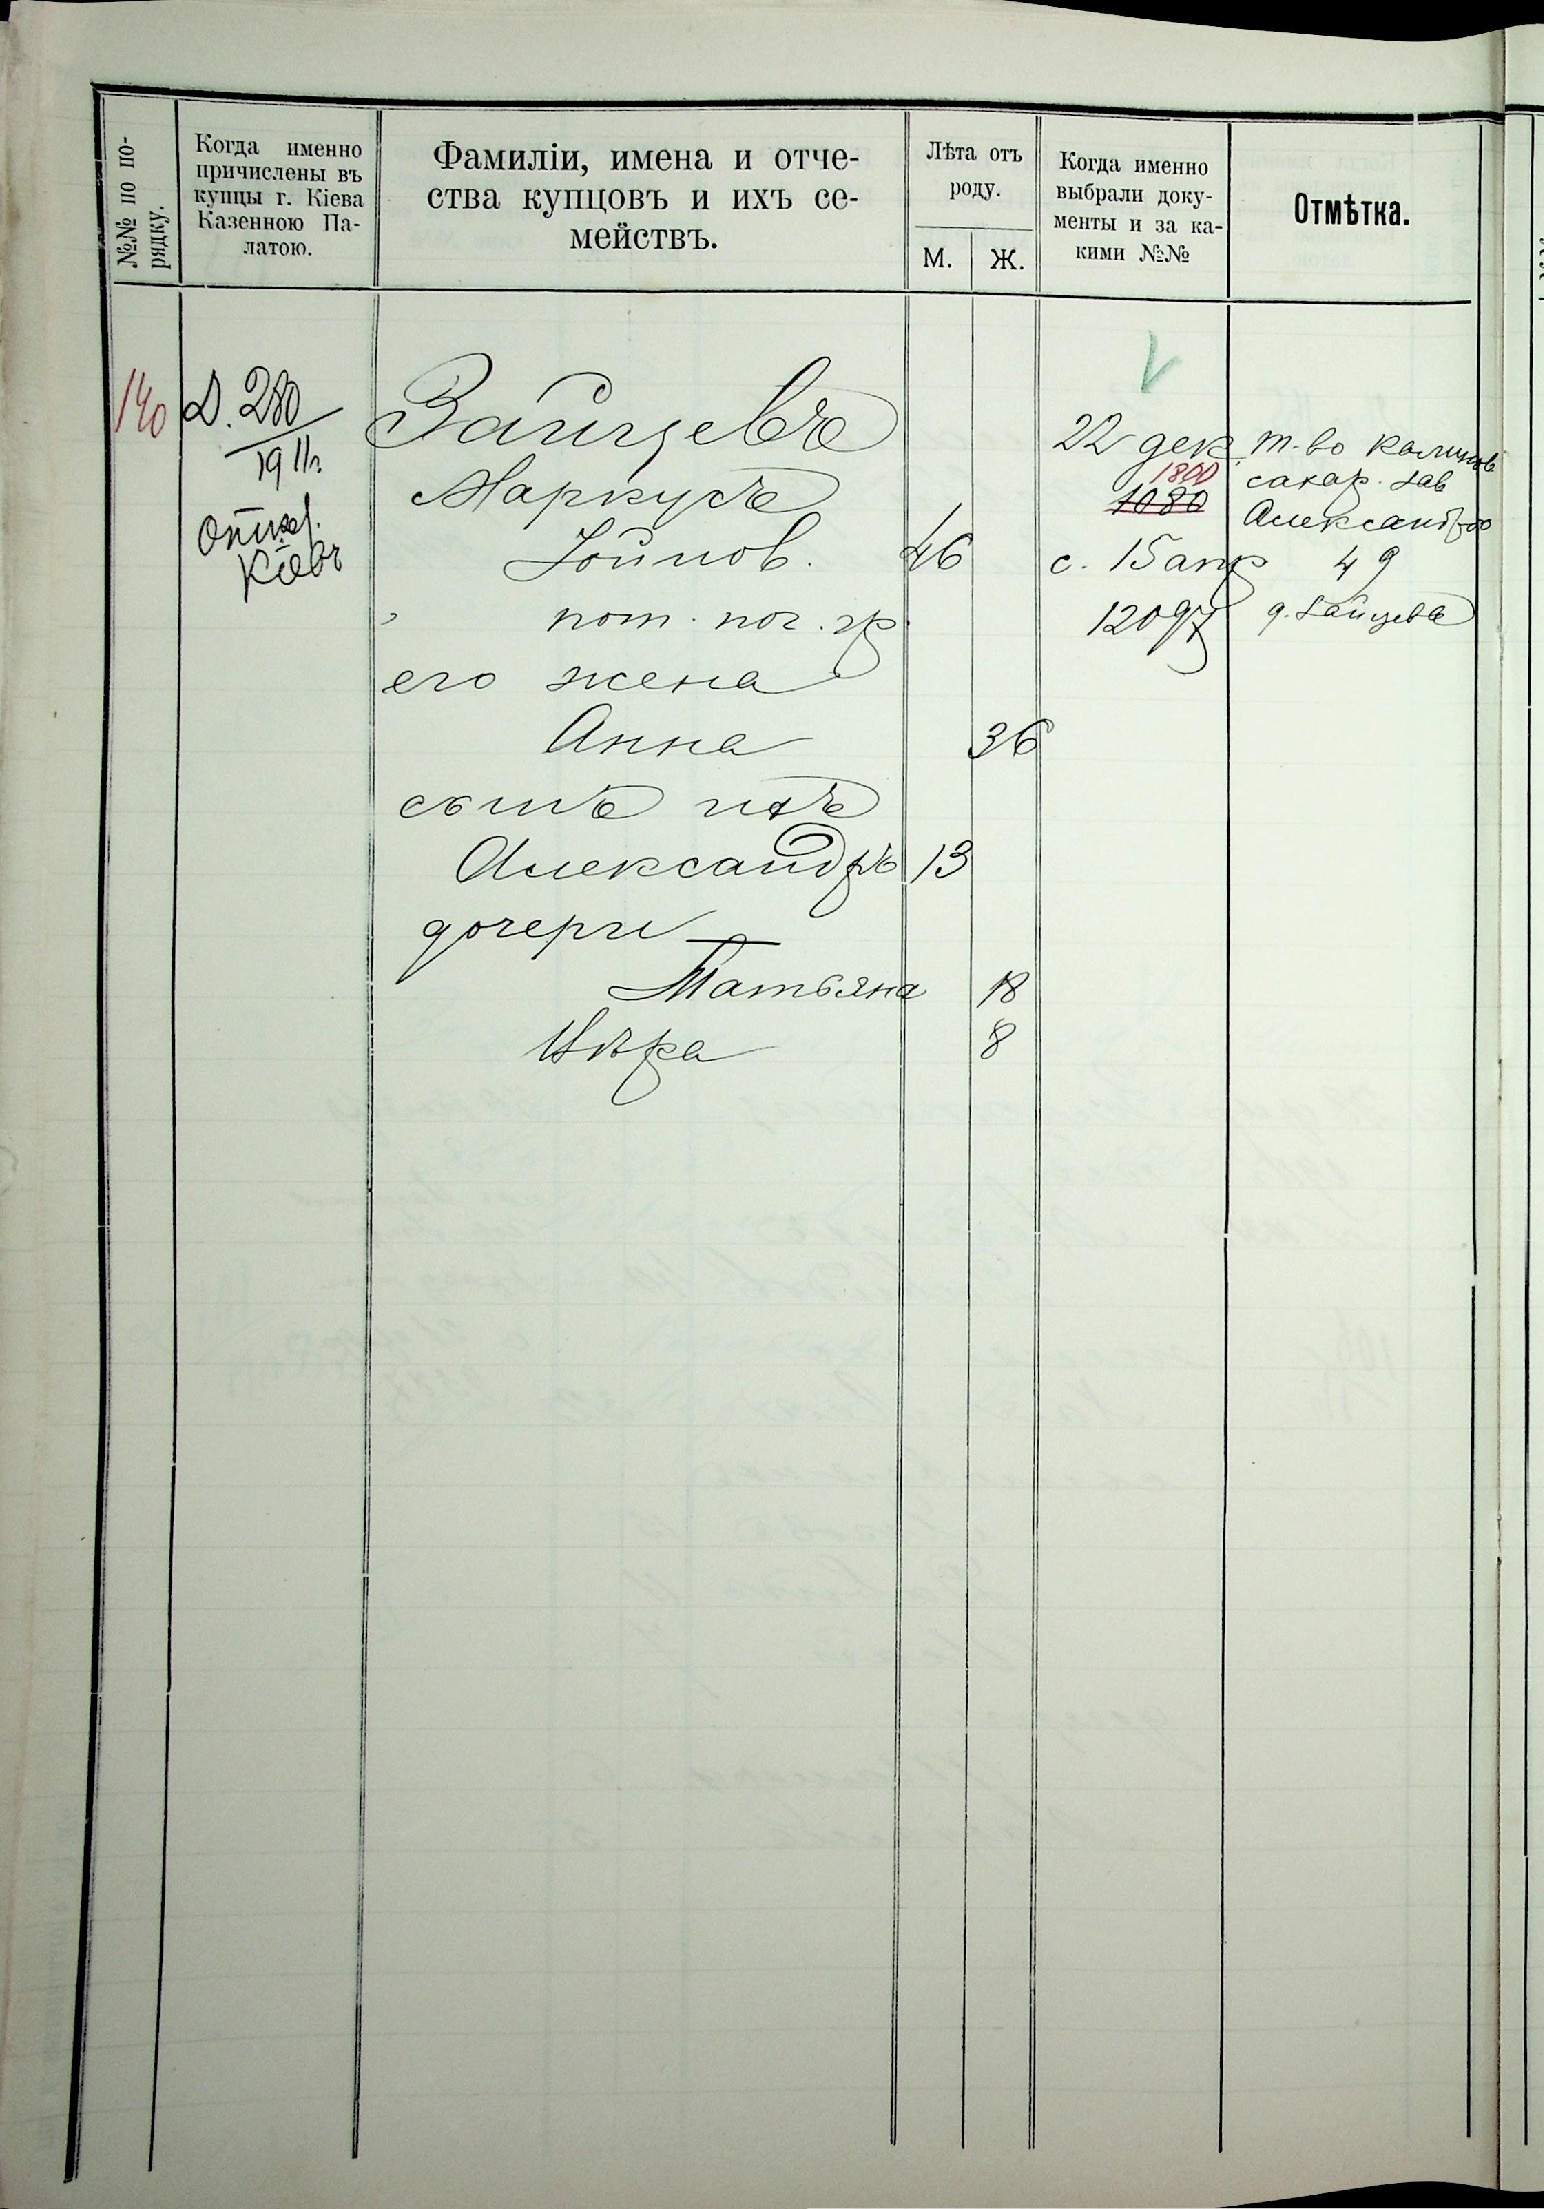 №№ по по-
рядку.
Когда именно
причислены въ
купцы г. Кіева
Казенною Па-
латою.
Фамиліи, имена и отче-
ства купцовъ и ихъ се-
мействъ.
Лѣта отъ
роду.
М.
Ж.
Когда именно
выбрали доку-
менты и за ка-
кими №№
Отмѣтка.
140
Д. 280
1911г.
Кіевъ
Зайцевъ
Маркусъ
Іойнов. 46
пот. поч. гр.
его жена
Анна 36
сынъ ихъ
Александръ 13
дочери
Татьяна 18
Вѣра 8
V
22 дек.
1800
1080
с. 15 апр
12097
т-во
сахар. зав
Александров
49
д. Зайцева